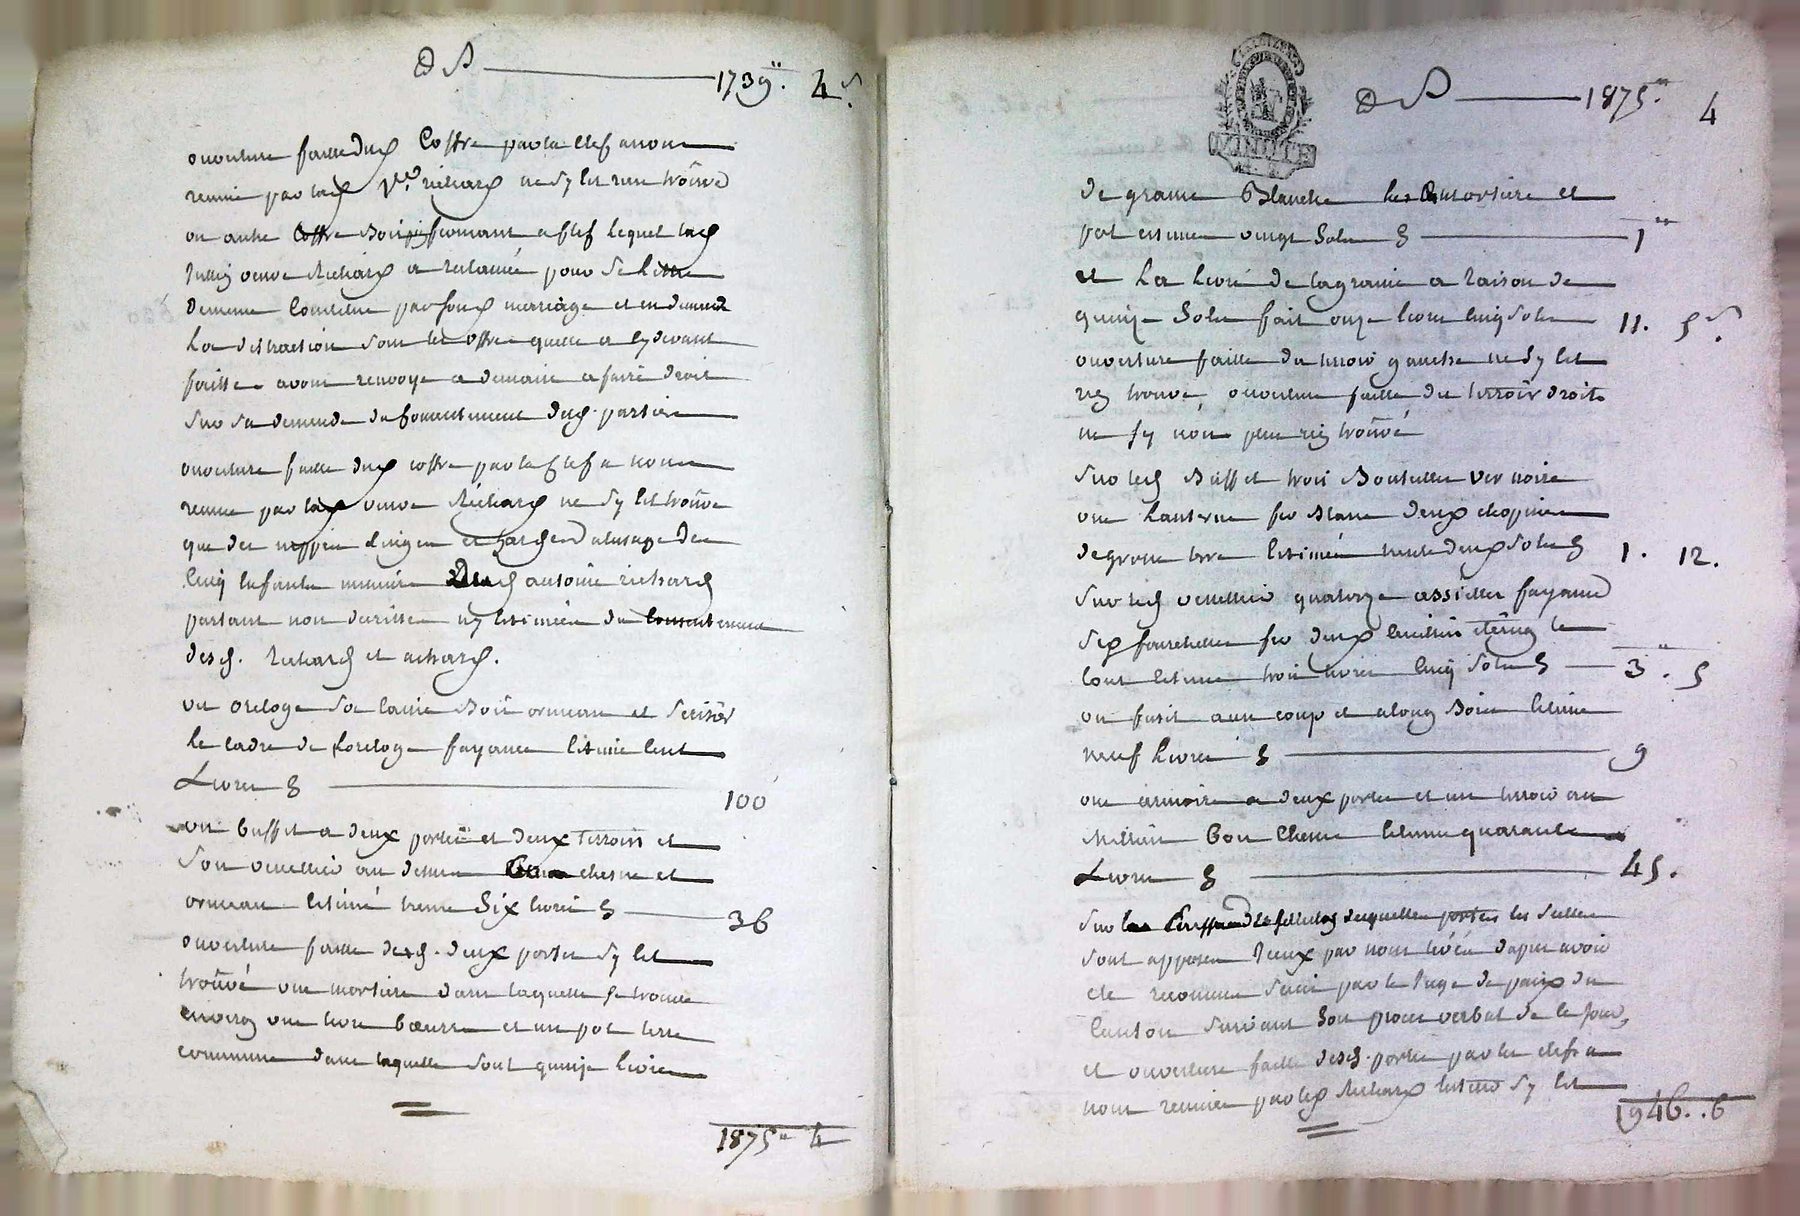 1739. 4s.
ouverture faitte dud Coffre par la Clef a nous
remise par lad Ve. richard ne sy est rien trouvé
un autre Coffre Bois fermant a Clef lequel lad
veuve Richard a reclamé pour
par son mariage et en demende
La distraction sous les offres quelle a cy devant
faittes avons renvoyé a demain a faire droit
sur sa demende du Consentement des. parties
ouverture faitte dud coffre par la Clef a nous
remise par lad veuve Richard ne sy est trouvé
que des linges et hardes a lusage des
Cinq Enfants mineurs Dud antoine richard
partant non decrittes ny Estimées du Consentement
desd. Richard et achard.
un orloge sa Caisse Bois ormeau et
le cadre de Lorloge fayance Estimé Cent
Livres 100
un buffet a deux portes et deux tirroirs et
son vessellier au dessus Bois chesne et
ormeau Estimé trente Six livres 36
ouverture faitte desd. deux portes sy Est
trouvé une mortiere dans laquelle se trouve
environ une livre beurre et un pot terre
commune dans laquelle sont quinze livres
1875 4
MINUTE
1875. 4
de graisse Blanche les mortiere et
pot estimés vingt Sols 1
et La Livre de la graisse a raison de
quinze Sols fait onze livres cinq sols 11. 5s.
ouverture faitte du tirroir gauche ne sy Est
rien trouvé, ouverture faitte du tirroir droit
ne sy non plus rien trouvé
sur led Buffet trois Bouteilles ver noire
une Lanterne fer Blanc deux chopines
de grosse terre Estimées trente deux sols 1. 12.
sur led vessellier quatorze assiettes fayance
Six fourchettes fer deux Cuilliers le
tout Estimé trois livres Cinq Sols 3. 5
un fusit a un coup et Bois Estimé
neuf Livres 9
une armoire a deux portes et un tirroir au
Millieu bois Chesne Estimé quarante
Livres 45.
sur desquelles portes les Scelles
sont apposés Iceux par nous levés dapres avoir
ete reconnus par le Juge de paix du
Canton suivant Son proces verbal de ce Jour,
et ouverture faitte desd. portes par les clefs a
nous remises par led Richard sy Est
1946..6